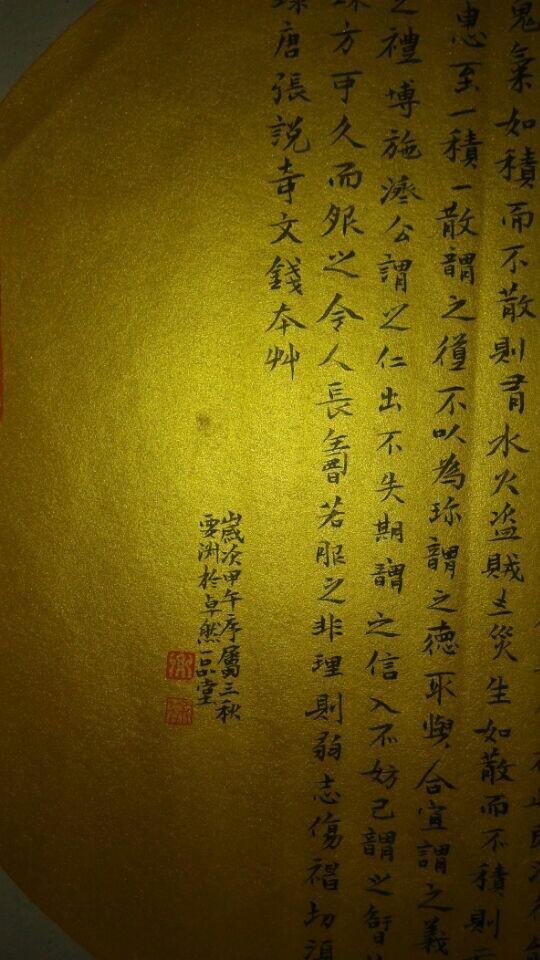 鬼氣如積而不散則有水火盜賊之災生如散而不積則
惠至一積一散謂之道不以為珍謂之德取與合宜謂之義
之禮博施濟公謂之仁出不失期謂之信入不妨己謂之智
方可久而服之令人長壽若服之非理則弱志傷神切須
唐張說奇文錢本艸
歲次甲午序屬三秋
於卓然一品堂